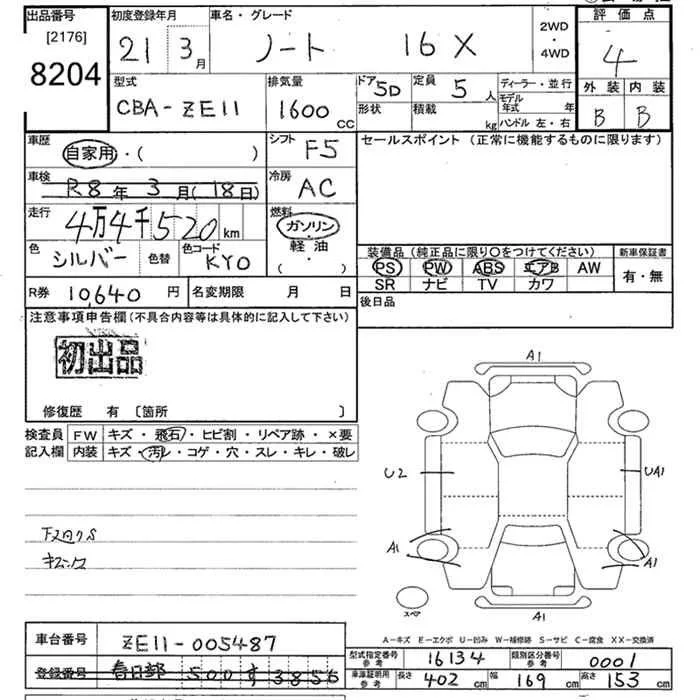 出品番号
[2176]
8204
初度登録年月
21 3月
車名・グレード
ノート 16X
2WD
・
4WD
評価点
4
外装 内装
B B
型式
CBA-ZE11
排気量
1600 cc
ドア 5D
形状
定員 5人
積載 kg
ディーラー・並行
モデル年式 年
ハンドル 左・右
車歴
自家用・( )
シフト F5
セールスポイント (正常に機能するものに限ります)
車検
R8年 3月(18日)
冷房 AC
走行
4万4千520km
燃料
ガソリン
軽油
( ・ )
色 シルバー 色替 色コード KY0
装備品(純正品に限り〇をつけてください)
新車保証書
PS PW ABS エアB AW
有・無
SR ナビ TV カワ
R券 10,640円 名変期限 月 日
後日品
注意事項申告欄(不具合内容等は具体的に記入して下さい)
初出品
修復歴 有 〔箇所 〕
検査員 FW キズ・飛石・ヒビ割・リペア跡・×要
記入欄 内装 キズ・汚レ・コゲ・穴・スレ・キレ・破レ
A1
U2 UA1
A1 A1
A1
スペア
A-キズ E-エクボ U-凹み W-補修跡 S-サビ C-腐食 XX-交換済
車台番号 ZE11-005487
型式指定番号 参考 16134 類別区分番号 参考 0001
登録番号 春日部 500 す 3856
車庫証明用 参考 長さ 402cm 幅 169cm 高さ 153cm